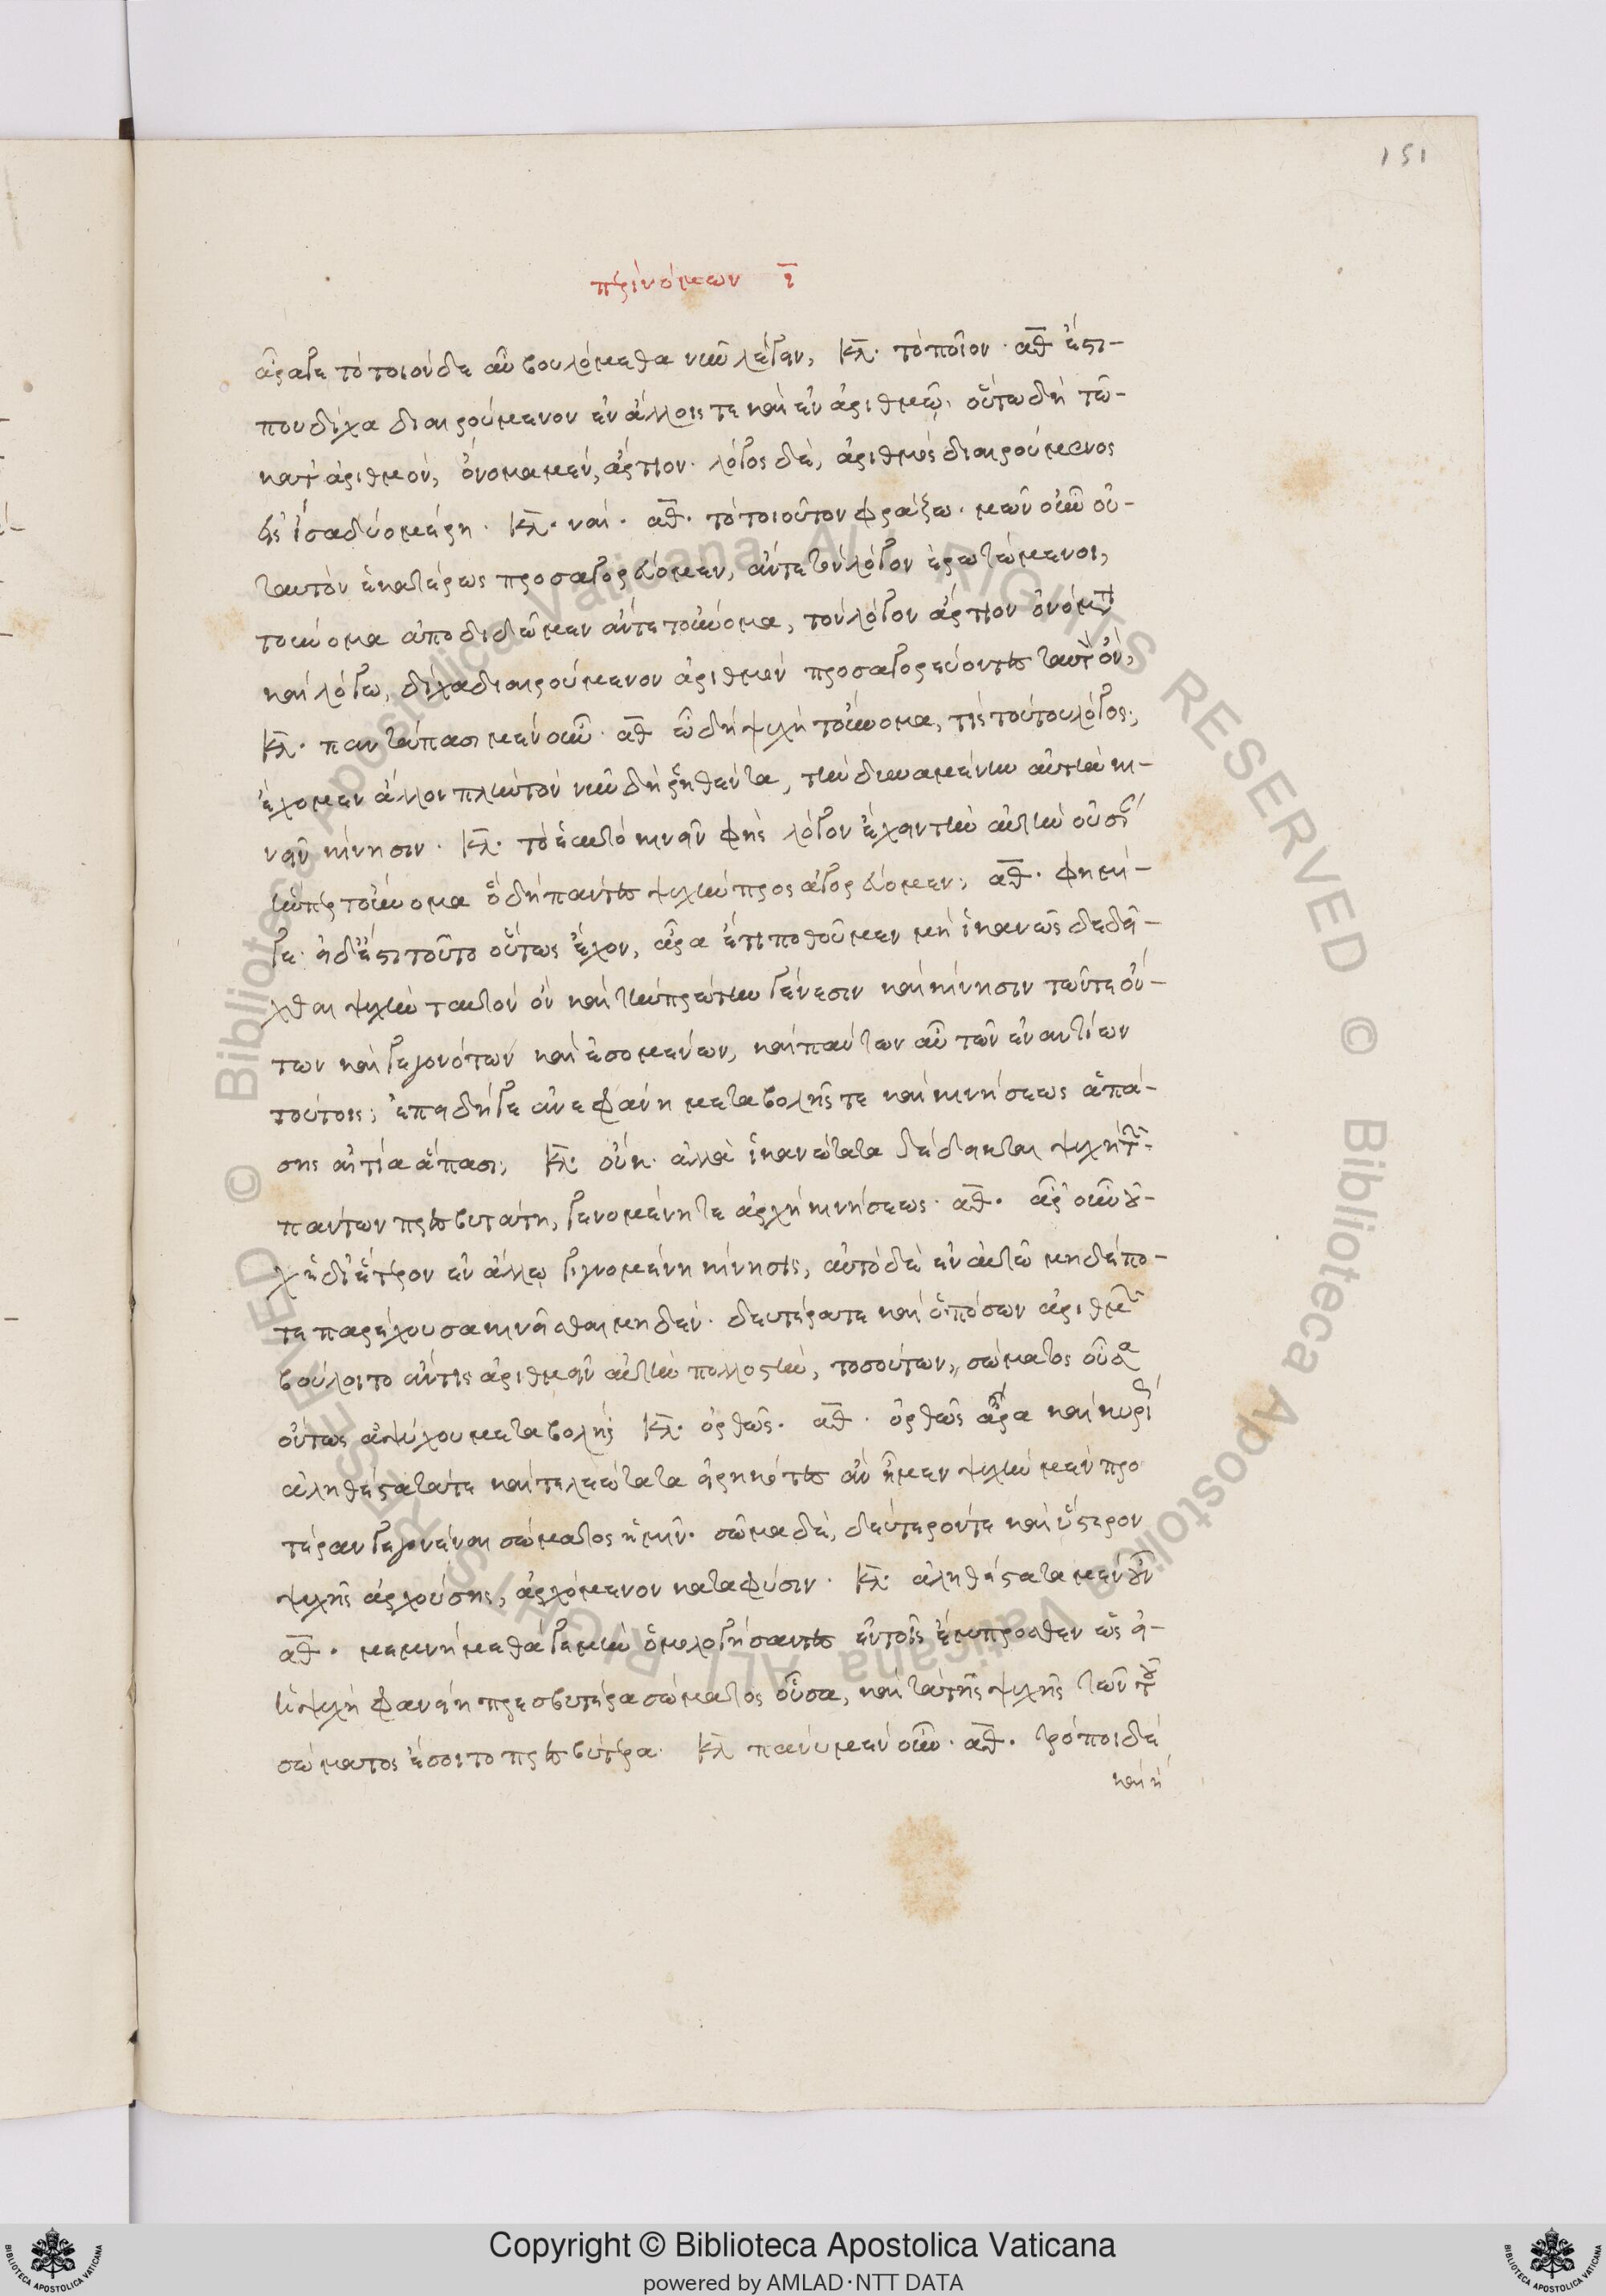 151
περὶ νόμων ι
ἆρά γε τὸ τοιόνδε αὖ βουλόμεθα νῦν λέγειν; κλ. τὸ ποῖον· αθ ἔστι-
που δίχα διαιρούμενον ἐν ἄλλοις τε καὶ ἐν ἀριθμῷ. οὕτω δὴ τῶ-
κατ' ἀριθμόν, ὄνομα μέν, ἄρτιον· λόγος δέ, ἀριθμὸς διαιρούμενος
εἰς ἴσα δύο μέρη. κλ. ναί. αθ. τὸ τοιοῦτον φράζω. μῶν οὖν οὐ-
ταυτὸν ἑκατέρως προσαγορεύομεν, ἄντε τὸν λόγον ἐρωτώμενοι,
τοὔνομα ἀποδιδῶμεν ἄντε τοὔνομα, τὸν λόγον ἄρτιον ὀνόματι
καὶ λόγω, δίχα διαιρούμενον ἀριθμὸν προσαγορεύοντες ταυτὸν ὄν;
κλ. παντάπασι μὲν οὖν. αθ ὧ δὴ ψυχὴ τοὔνομα, τίς τούτου λόγος;
ἔχομεν ἄλλον πλὴν τὸν νῦν δὴ ῥηθέντα, τὴν δυναμένην αὐτὴν κι-
νεῖν κίνησιν. κλ. τὸ ἑαυτὸ κινεῖν φὴς λόγον ἔχειν τὴν αὐτὴν οὐσίαν
ἥνπερ τοὔνομα ὃ δὴ πάντες ψυχὴν προσαγορεύομεν; αθ. φημί-
γε. εἰ δ' ἔστι τοῦτο οὕτως ἔχον, ἆρα ἔτι ποθοῦμεν μὴ ἱκανῶς δεδεῖ-
χθαι ψυχὴν ταυτὸν ὂν καὶ τὴν πρώτην γένεσιν καὶ κίνησιν τῶν τε ὄν-
των καὶ γεγονότων καὶ ἐσομένων, καὶ πάντων αὖ τῶν ἐναντίων
τούτοις; ἐπειδή γε ἀνεφάνη μεταβολῆς τε καὶ κινήσεως ἁπά-
σης αἰτία ἅπασι; κλ. οὔκ. ἀλλὰ ἱκανώτατα δέδεικται ψυχὴ τῶν-
πάντων πρεσβυτάτη, γενομένη τε ἀρχὴ κινήσεως. αθ. ἆρ' οὖν οὐ-
χ ἡ δι' ἕτερον ἐν ἄλλῳ γιγνομένη κίνησις, αὐτὸ δὲ ἐν αὑτῶ μηδέπο-
τε παρέχουσα κινεῖσθαι μηδέν. δευτέρα τε καὶ ὁπόσων ἀριθμῶν
βούλοιτο ἄν τις ἀριθμεῖν αὐτὴν πολλοστὴν, τοσούτων, σώματος οὖσα
οὕτως ἀψύχου μεταβολή; κλ. ὀρθῶς. αθ. ὀρθῶς ἄρα καὶ κυρί
ἀληθέστατά τε καὶ τελεώτατα εἰρηκότες ἂν ἦμεν ψυχὴν μὲν προ
τέραν γεγονέναι σώματος ἡμῖν. σῶμα δέ, δεύτερόν τε καὶ ὕστερον
ψυχῆς ἀρχούσης, ἀρχόμενον κατὰ φύσιν. κλ. ἀληθέστατα μὲν οὖν
αθ. μεμνήμεθά γε μὴν ὁμολογήσαντες ἐν τοῖς ἔμπροσθεν ὡς εἰ-
ἡ ψυχὴ φανείη πρεσβυτέρα σώματος οὖσα, καὶ τὰ τῆς ψυχῆς τῶν τοῦ
σώματος ἔσοιτο πρεσβύτερα. κλ πάνυ μὲν οὖν. αθ. τρόποι δὲ
καὶ ἤ
Copyright © Biblioteca Apostolica Vaticana
powered by AMLAD·NTT DATA